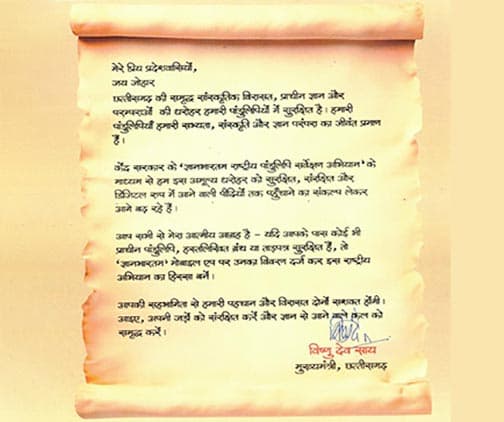 मेरे प्रिय प्रदेशवासियों,
जय जोहार
छत्तीसगढ़ की समृद्ध सांस्कृतिक विरासत, प्राचीन ज्ञान और
परम्पराओं की धरोहर हमारी पांडुलिपियों में सुरक्षित है। हमारी
पांडुलिपियाँ हमारी सभ्यता, संस्कृति और ज्ञान परंपरा का जीवंत प्रमाण
हैं।
केंद्र सरकार के 'ज्ञानभारतम राष्ट्रीय पांडुलिपि सर्वेक्षण अभियान' के
माध्यम से हम इस अमूल्य धरोहर को सुरक्षित, संरक्षित और
डिजिटल रूप में आने वाली पीढ़ियों तक पहुँचाने का संकल्प लेकर
आगे बढ़ रहे हैं।
आप सभी से मेरा आत्मीय आग्रह है – यदि आपके पास कोई भी
प्राचीन पांडुलिपि, हस्तलिखित ग्रंथ या ताड़पत्र सुरक्षित है, तो
'ज्ञानभारतम' मोबाइल एप पर उनका विवरण दर्ज कर इस राष्ट्रीय
अभियान का हिस्सा बनें।
आपकी सहभागिता से हमारी पहचान और विरासत दोनों सशक्त होंगी।
आइए, अपनी जड़ों को संरक्षित करें और ज्ञान से आने वाले कल को
समृद्ध करें।
विष्णु देव साय
मुख्यमंत्री, छत्तीसगढ़